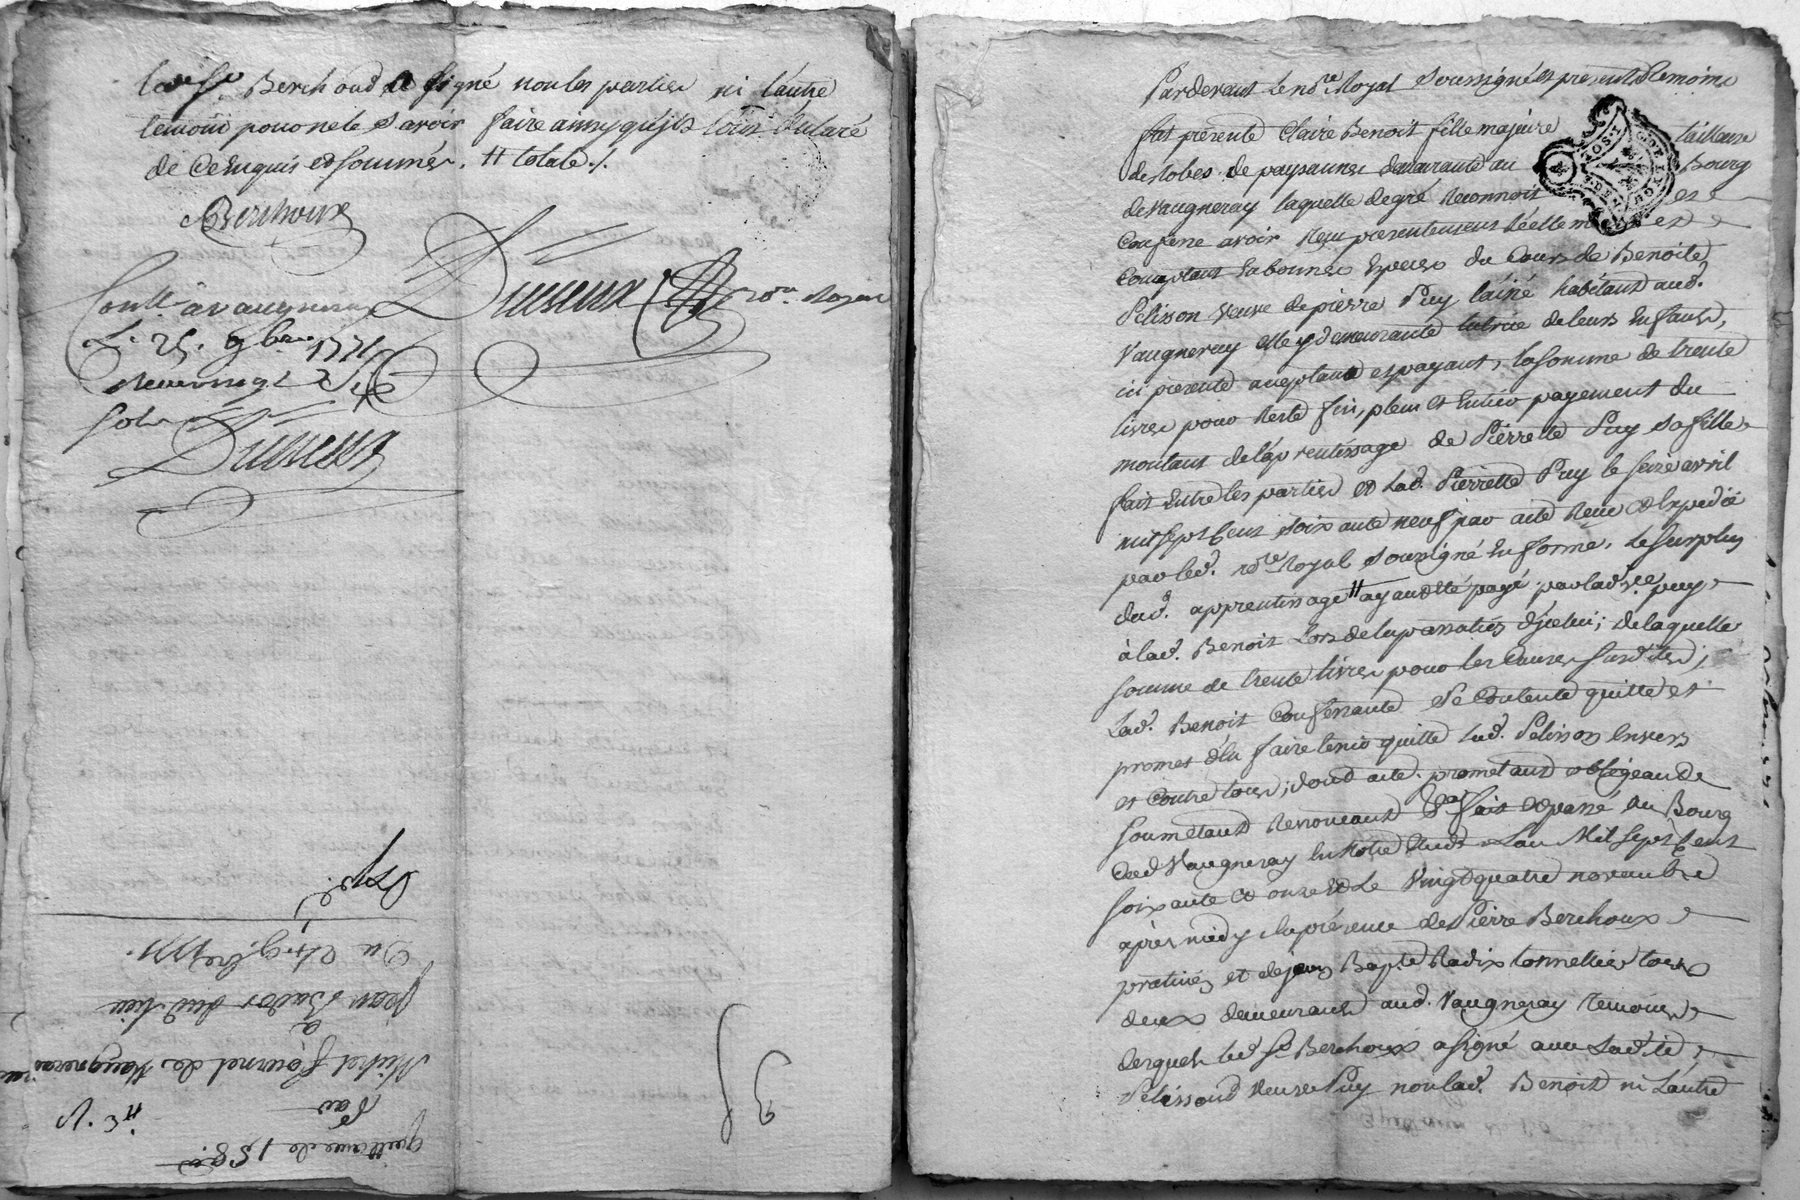 led. Sr. Berchoud a signé non les parties ni l'autre
temoin pour ne le savoir faire ainsy qu'ils l'ont declaré
de ce enquis et sommés. # totale ./.
Berchoux
Dusieux nore. Royal
Conllé à vaugneray
Le 25. 9bre 1771
Reçu vingt
sols
Dusieux
Expd.
Du 21. 9bre 1771.
Jean Bador dud. lieu
à
Michel Fournel de Vaugneray
Par
quittance de 158
3
Pardevant le nore. Royal soussigné et presents temoins
fut presente Claire Benoit fille majeure tailleuse
de robes de paysannes demeurante au Bourg
de Vaugneray laquelle de gré reconnoit et
confesse avoir reçu presentement réellement et
comptant en bonnes especes du cours de Benoite
Pelisson veuve de pierre Puy lainé habitant aud.
Vaugneray elle y demeurante tutrice de leurs enfants,
ici presente acceptante et payant, la somme de trente
livres pour reste fin, plein et entier payement du
montant de l'aprentissage de Pierrette Puy sa fille
fait entre les parties et lad. Pierrette Puy le seize avril
mil sept cent soixante neuf par acte reçu et expedié
par led. nore. Royal soussigné en forme, le surplus
dud. apprentissage # ayant été payé par lad. ve. puy
à lad. Benoit lors de la passation d'icelui; de laquelle
somme de trente livres pour les causes susdites,
Lad. Benoit confessante se contente quitte et
promet de la faire tenir quitte lad. Pelisson envers
et contre tous, dont acte. promettant obligeant
soumettant renonceant &a. fait et passé au Bourg
dud. Vaugneray en notre etude L'an Mil sept cent
soixante et onze et Le Vingt quatre novembre
après midy en presence de Pierre Berchoux
praticien et de jean Bapte. Radix tonnellier tous
deux demeurans aud. Vaugneray temoins
desquels led. Sr. Berchoux a signé avec Ladite
Pelissond veuve Puy non lad. Benoit ni L'autre